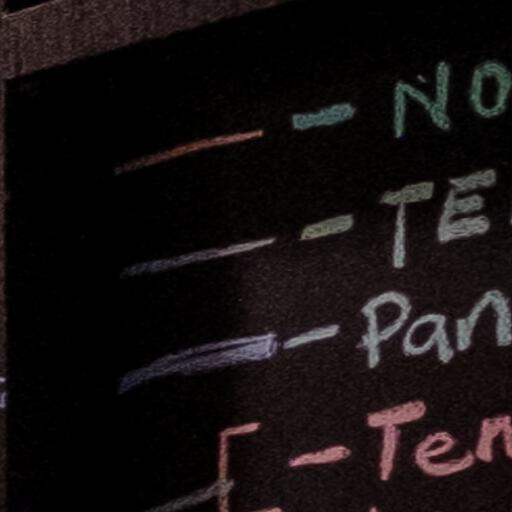 - NO
- TE
- Pan
- Ten